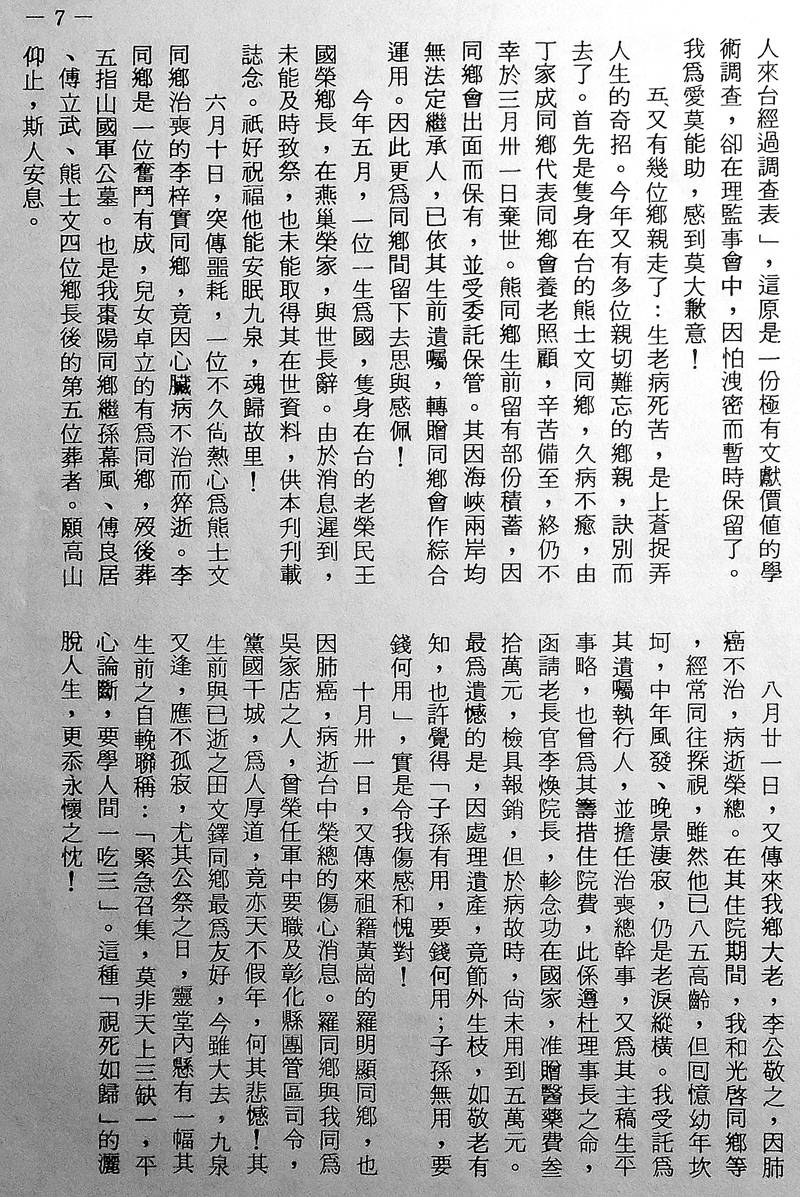 — 7 —
人來台經過調查表」,這原是一份極有文獻價值的學
術調查,卻在理監事會中,因怕洩密而暫時保留了。
我爲愛莫能助,感到莫大歉意!
五、又有幾位鄉親走了:生老病死苦,是上蒼捉弄
人生的奇招。今年又有多位親切難忘的鄉親,訣別而
去了。首先是隻身在台的熊士文同鄉,久病不癒,由
丁家成同鄉代表同鄉會養老照顧,辛苦備至,終仍不
幸於三月卅一日棄世。熊同鄉生前留有部份積蓄,因
同鄉會出面而保有,並受委託保管。其因海峽兩岸均
無法定繼承人,已依其生前遺囑,轉贈同鄉會作綜合
運用。因此更爲同鄉間留下去思與感佩!
今年五月,一位一生爲國,隻身在台的老榮民王
國榮鄉長,在燕巢榮家,與世長辭。由於消息遲到,
未能及時致祭,也未能取得其在世資料,供本刋刋載
誌念。祇好祝福他能安眠九泉,魂歸故里!
六月十日,突傳噩耗,一位不久尙熱心爲熊士文
同鄉治喪的李梓實同鄉,竟因心臟病不治而猝逝。李
同鄉是一位奮鬥有成,兒女卓立的有爲同鄉,歿後葬
五指山國軍公墓。也是我棗陽同鄉繼孫幕風、傅良居
、傅立武、熊士文四位鄉長後的第五位葬者。願高山
仰止,斯人安息。
八月廿一日,又傳來我鄉大老,李公敬之,因肺
癌不治,病逝榮總。在其住院期間,我和光啓同鄉等
,經常同往探視,雖然他已八五高齡,但囘憶幼年坎
坷,中年風發、晚景淒寂,仍是老淚縱橫。我受託爲
其遺囑執行人,並擔任治喪總幹事,又爲其主稿生平
事略,也曾爲其籌措住院費,此係遵杜理事長之命,
函請老長官李煥院長,軫念功在國家,准贈醫藥費叁
拾萬元,檢具報銷,但於病故時,尙未用到五萬元。
最爲遺憾的是,因處理遺產,竟節外生枝,如敬老有
知,也許覺得「子孫有用,要錢何用;子孫無用,要
錢何用」,實是令我傷感和愧對!
十月卅一日,又傳來祖籍黃崗的羅明顯同鄉,也
因肺癌,病逝台中榮總的傷心消息。羅同鄉與我同爲
吳家店之人,曾榮任軍中要職及彰化縣團管區司令,
黨國干城,爲人厚道,竟亦天不假年,何其悲憾!其
生前與已逝之田文鐸同鄉最爲友好,今雖大去,九泉
又逢,應不孤寂,尤其公祭之日,靈堂內懸有一幅其
生前之自輓聯稱:「緊急召集,莫非天上三缺一,平
心論斷,要學人間一吃三」。這種「視死如歸」的灑
脫人生,更忝永懷之忱!